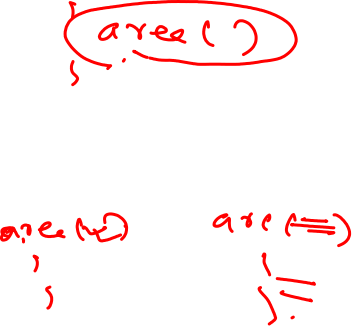 area ( )
area ( ) are ( )